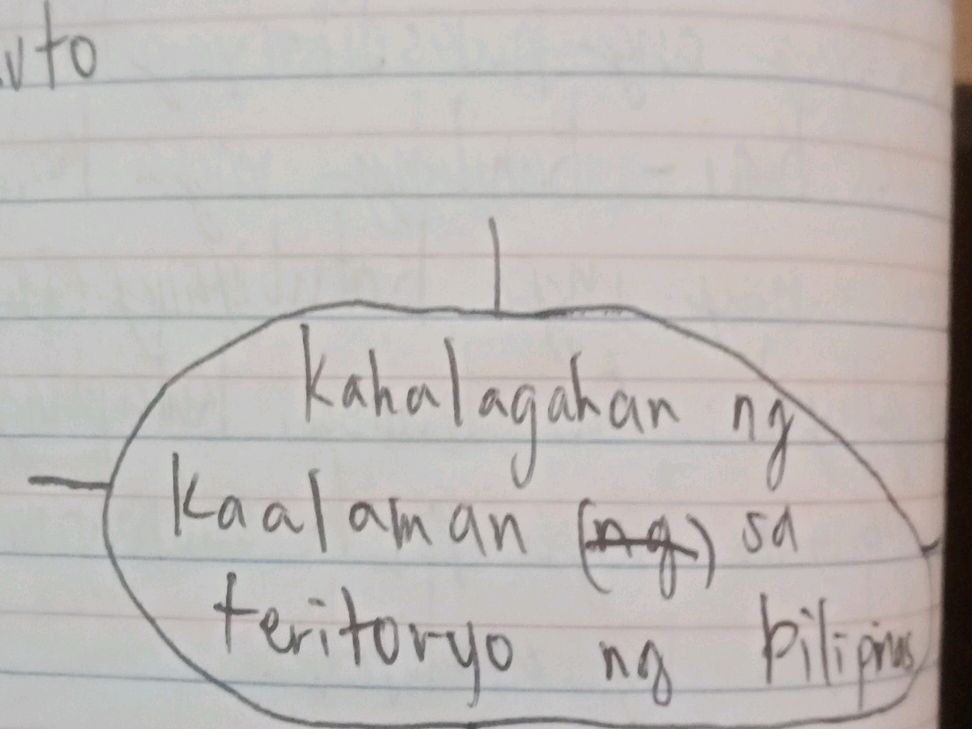 Kahalagahan ng
Kaalaman (ng) sa
teritoryo ng Pilipinas